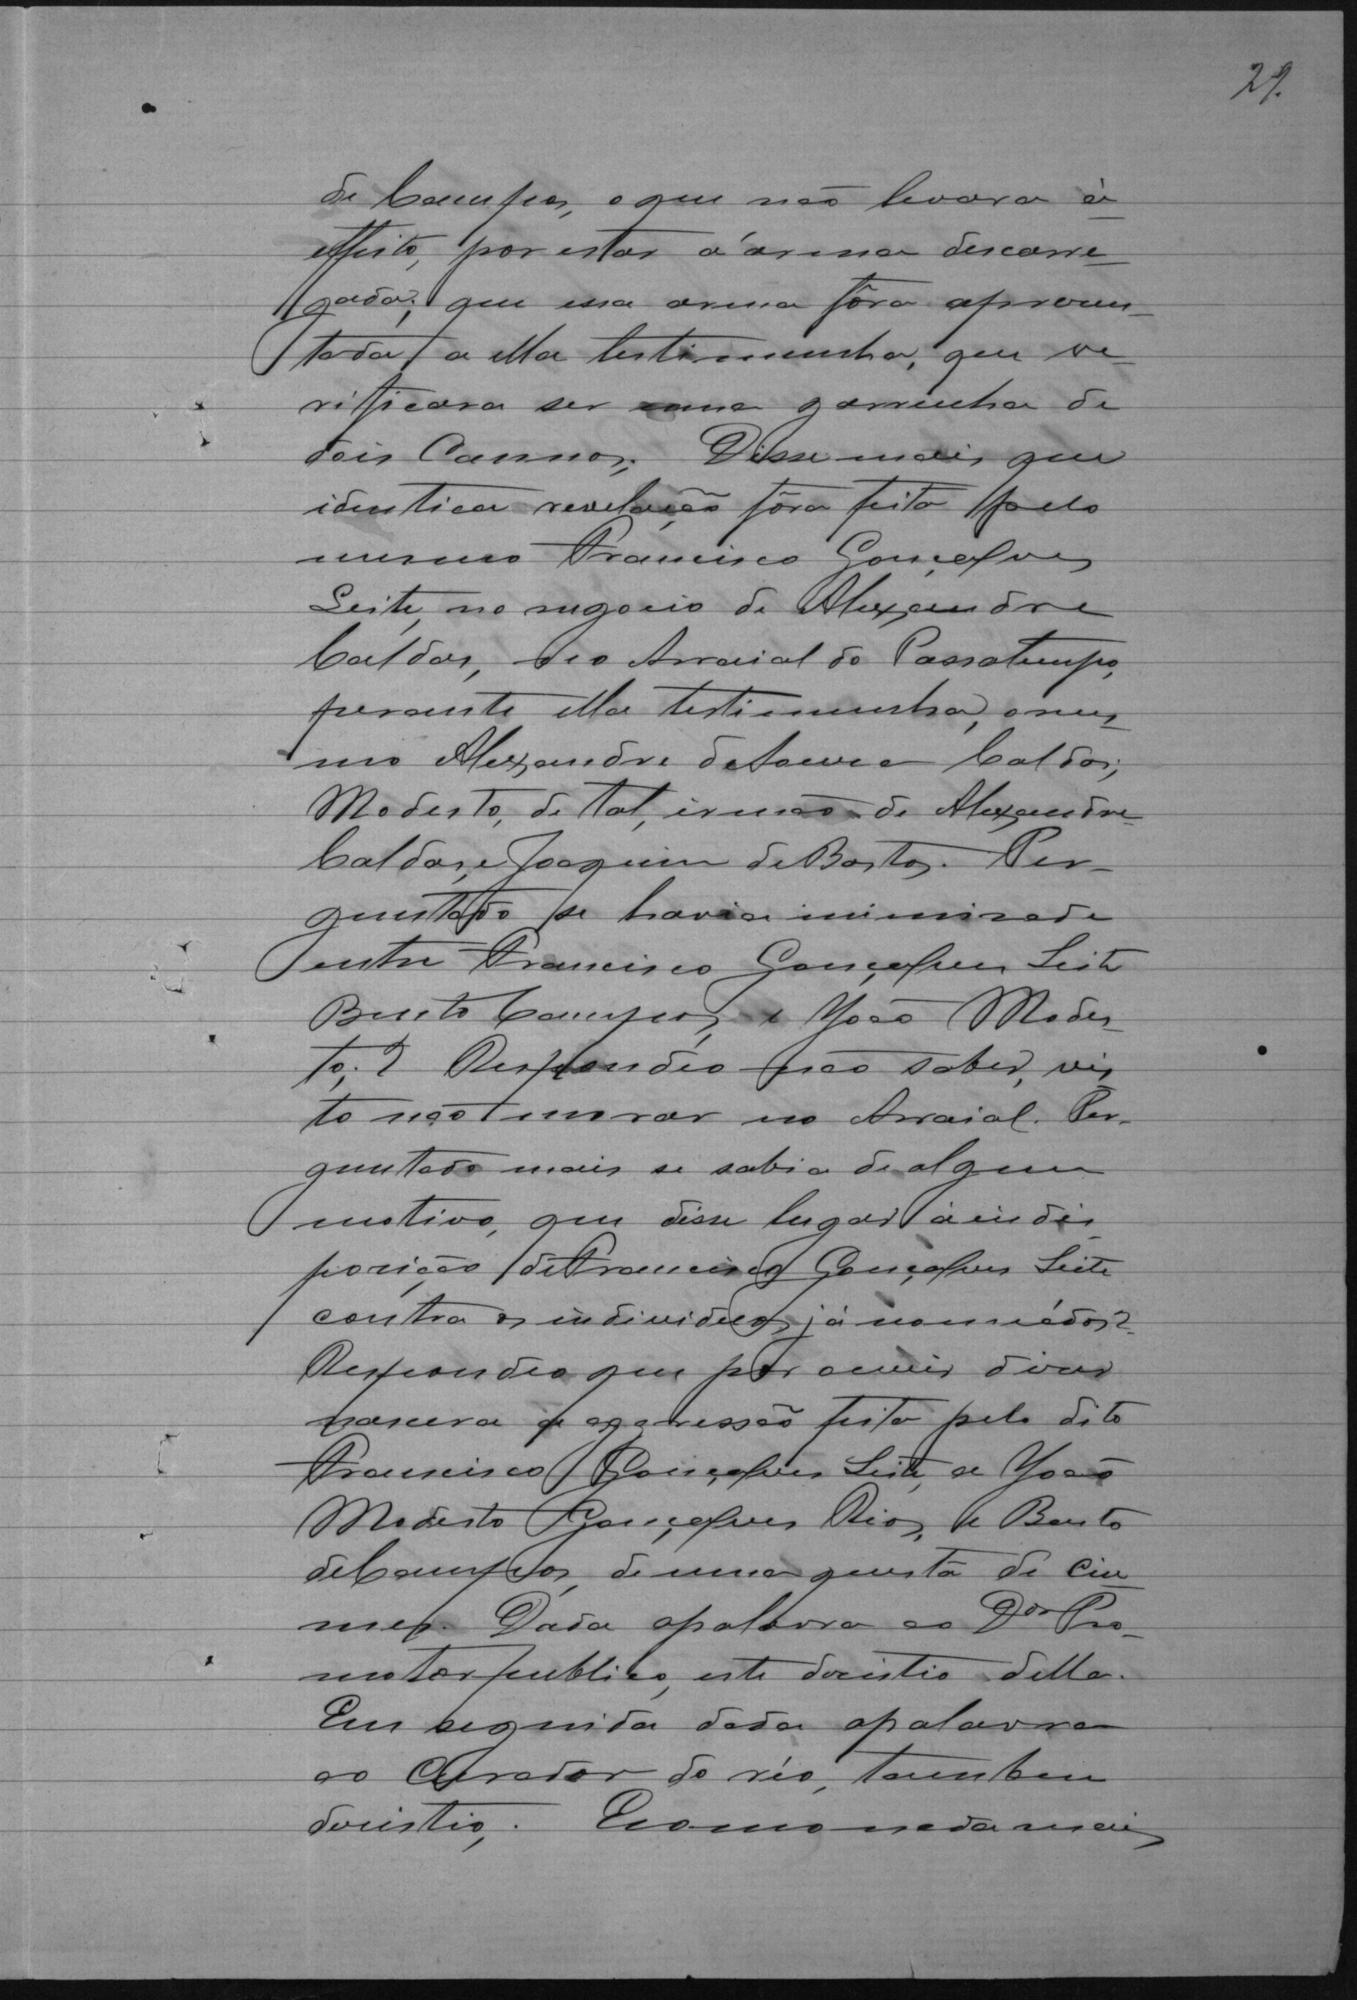 29.
de Campos, o que não levara à
effeito, por estar a arma descarre-
gada; que essa arma fôra apresen-
tada a ella testimunha, que ve-
rificara ser uma garrucha de
dois Cannos. Disse mais que
identica revelação fôra feita pelo
mesmo Francisco Gonçalves
Leite, no negocio de Alexandre
Caldas, no Arraial do Passatempo,
perante ella testimunha, o mes-
mo Alexandre de Souza Caldas,
Modesto, de tal, irmão de Alexandre
Caldas, e Joaquim de Bastos. Per-
guntado se havia inimisade
entre Francisco Gonçalves Leite
Bento Campos, e João Modes-
to,? Respondeo não saber, vis-
to não morar no Arraial. Per-
guntado mais se sabia de algum
motivo, que desse lugar à indis-
posição de Francisco Gonçalves Leite
contra os individuos já nomeádos?
Respondeo que por ouvir dizer
nascera a aggressão feita pelo dito
Francisco Gonçalves Leite, a João
Modesto Gonçalves Rios, e Bento
de Campos, de uma questã de ciu-
mes. Dada a palavra ao Dor Pro-
motor publico, este desistio della.
Em seguida dada a palavra
ao Curador do réo, tambem
desistio,. E como nada mais